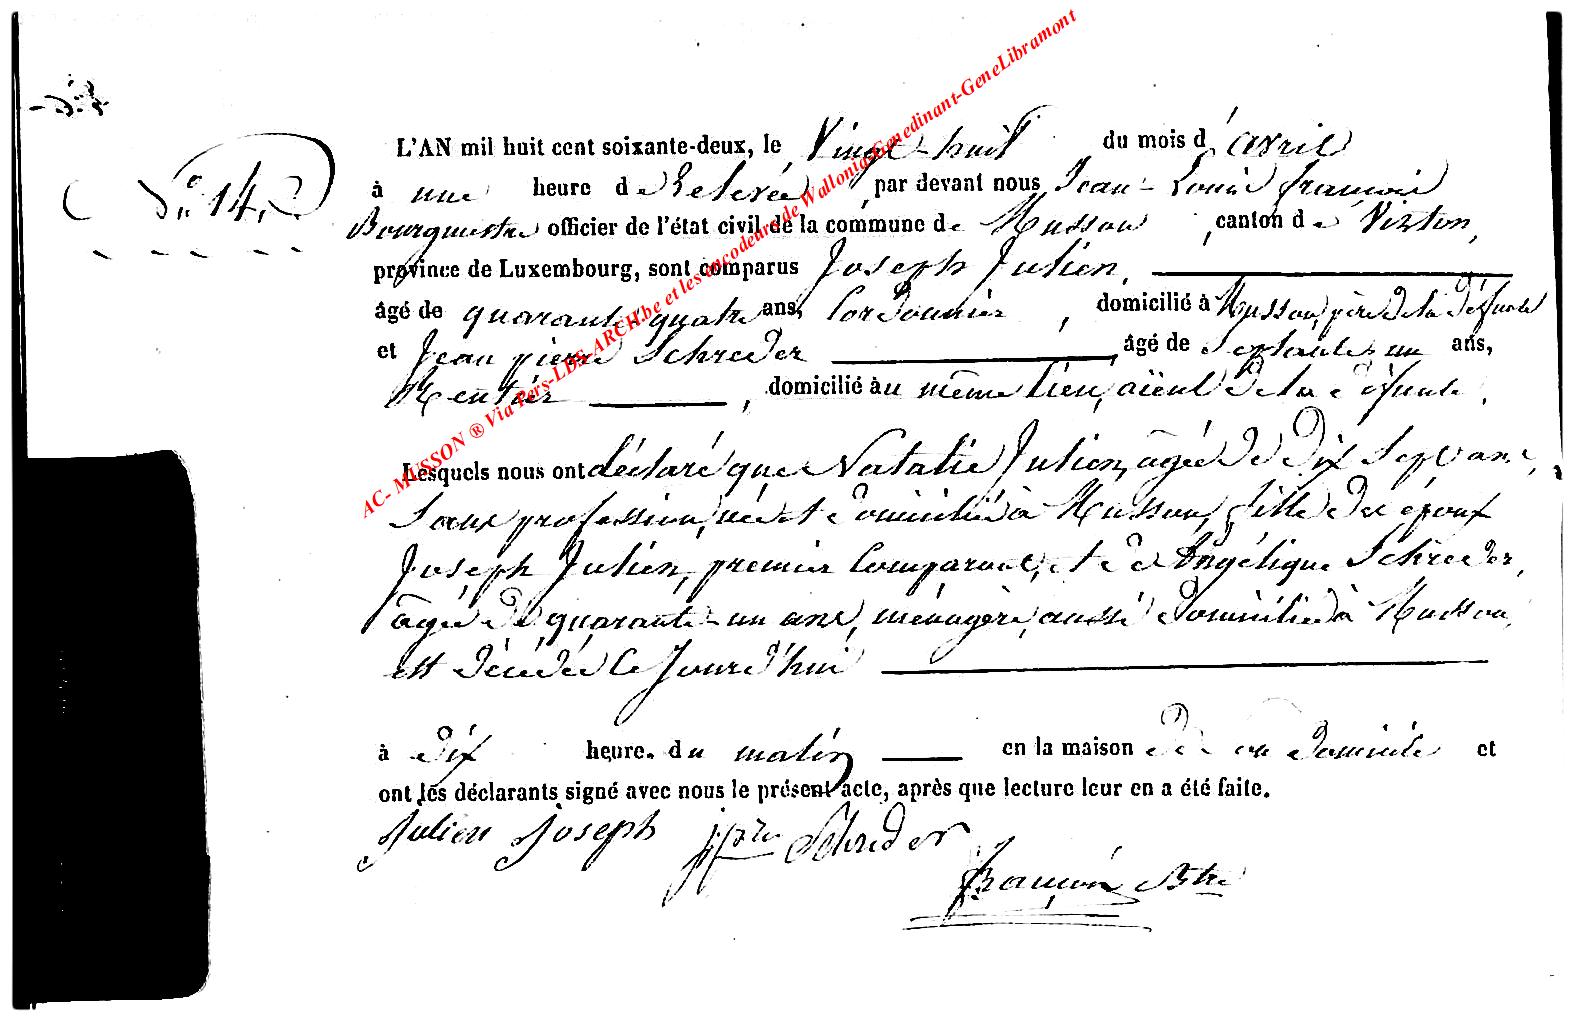 N.º 14.
L'AN mil huit cent soixante-deux, le Vingt-huit du mois d'avril
à une heure de Relevée, par devant nous Jean-Louis françois
Bourgmestre officier de l'état civil de la commune de Musson, canton de Virton,
province de Luxembourg, sont comparus Joseph Julien,
âgé de quarante quatre ans, Cordonnier, domicilié à Musson, père de la défunte
et Jean pierre Schreder âgé de septante un ans,
Rentier, domicilié au même lieu, aïeul de la défunte.
Lesquels nous ont déclaré que Natalie Julien, âgée de dix sept ans,
sans profession, née et domiciliée à Musson, fille des époux
Joseph Julien, premier Comparant, et de Angélique Schreder,
âgée de quarante-un ans, ménagère, aussi domiciliée à Musson,
est décédée Ce Jourd'hui
à dix heure. du matin en la maison de son domicile et
ont les déclarants signé avec nous le présent acte, après que lecture leur en a été faite.
Julien Joseph jpre Schreder
françois Btre
AC- MUSSON ® Via Pers-LDS-ARCH.be et les encodeurs de Wallonia-Genedinant-GeneLibramont